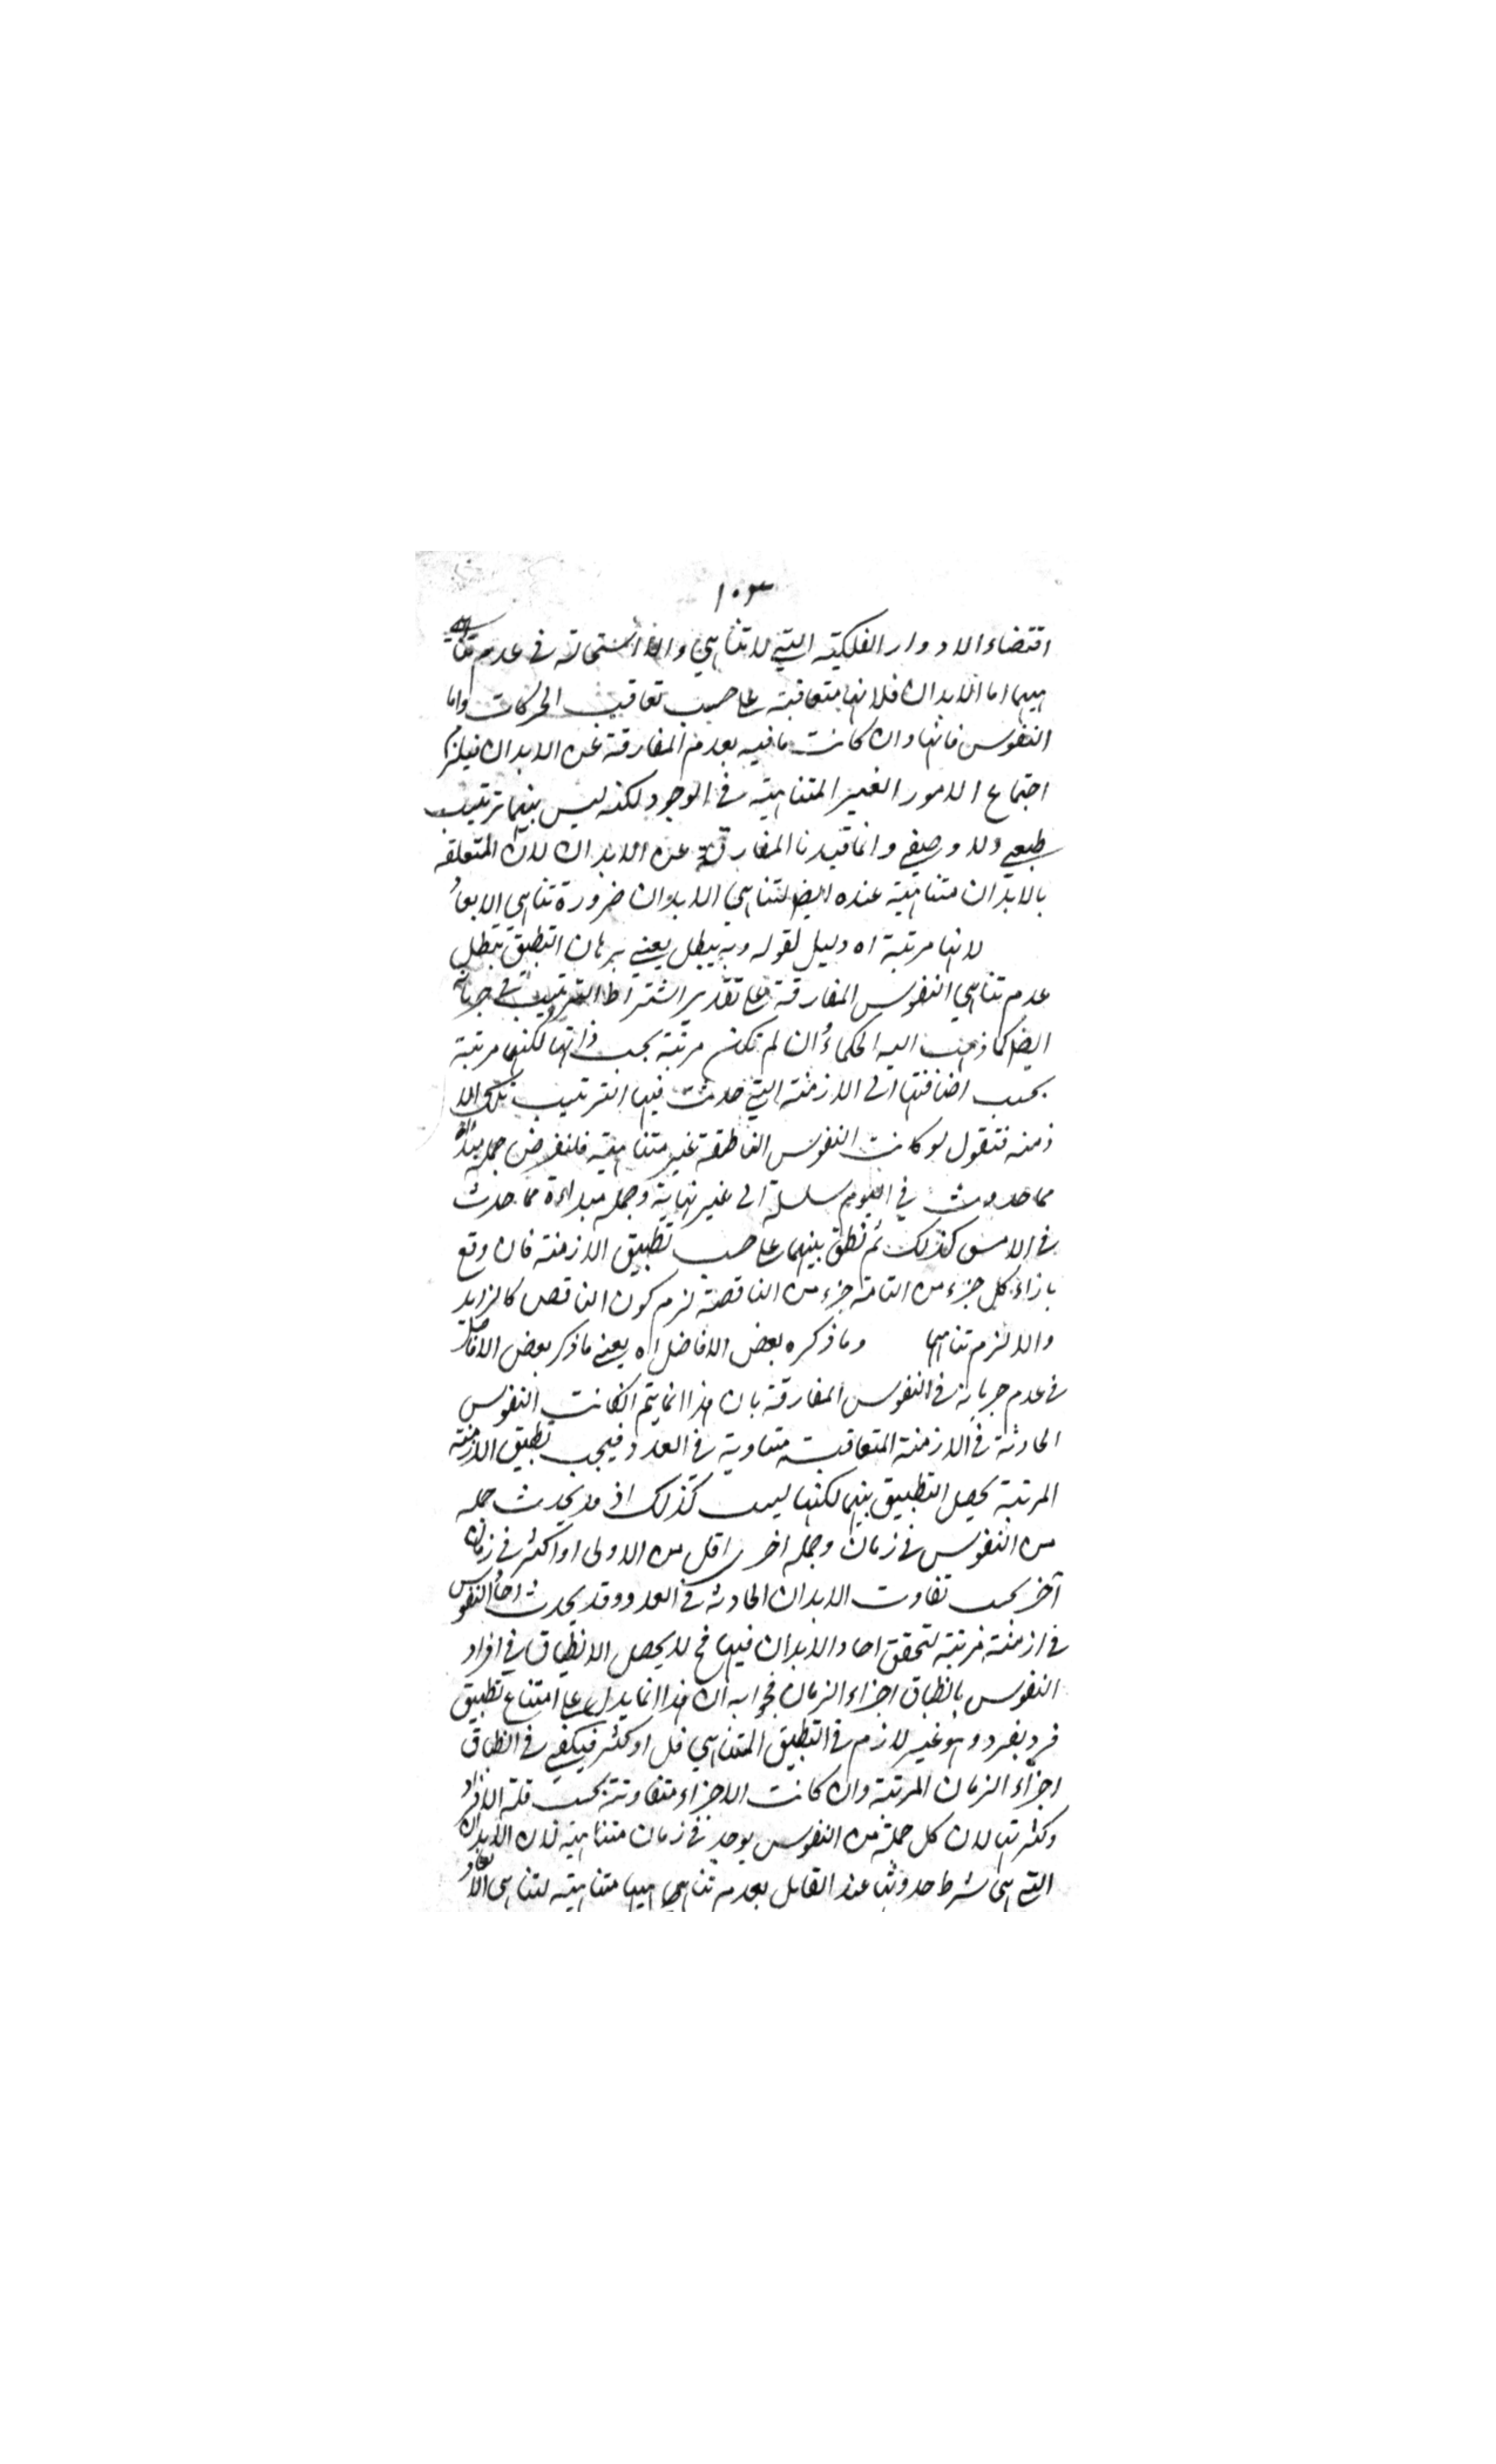 ١٠٣
اقتضاء الادوار الفلكية التي لا تتناهى ولا استحالة في عدم
اما الابدان فلانها متعاقبة على حسب تعاقب الحركات واما
النفوس فانها وان كانت باقية بعد المفارقة عن الابدان فيلزم
اجتماع الامور الغير المتناهية في الوجود لكنه ليس بينها ترتيب
طبعي ولا وضعي وانما قيدنا المفارقة عن الابدان لان المتعلقة
بالابدان متناهية عنده ايضا لتناهي الابدان ضرورة تناهي الابعاد
لانها مرتبة اه دليل لقوله وبه يبطل يعني ببرهان التطبيق يبطل
عدم تناهي النفوس المفارقة على تقدير اشتراط الترتيب في جريانه
ايضا كما ذهب اليه الحكماء وان لم تكن مرتبة بحسب ذاتها لكنها مرتبة
بحسب اضافتها الى الازمنة التي حدثت فيها لترتيب تلك الا
زمنه فنقول لو كانت النفوس الناطقة غير متناهية فلنفرض جملة مبداة
مما حدث في اليوم سلسلة الى غير نهاية وجملة مبداة مما حدث
في الامس كذلك ثم نطبق بينهما على حسب تطبيق الازمنة فان وقع
بازاء كل جزء من التامة جزء من الناقصة لزم كون الناقص كالزايد
والا لزم تناهيها وما ذكره بعض الافاضل اه يعني ما ذكر بعض الافاضل
في عدم جريانه في النفوس المفارقة بان هذا انما يتم ان كانت النفوس
الحادثة في الازمنة المتعاقبة متساوية في العدد فبحسب تطبيق الازمنة
المرتبة يحصل التطبيق بينها لكنها ليست كذلك اذ قد يحدث جملة
من النفوس في زمان وجملة اخرى اقل من الاولى او اكثر في زمان
آخر بحسب تفاوت الابدان الحادثة في العدد وقد يحدث احاد النفوس
في ازمنة مرتبة لتحقق احاد الابدان فيها فح لا يحصل الانطباق في افراد
النفوس بانطباق اجزاء الزمان فجوابه ان هذا انما يدل على امتناع تطبيق
فرد بفرد وهو غير لازم في التطبيق المتناهي قل او كثر فيكفي في انطباق
اجزاء الزمان المرتبة وان كانت الاجزاء متفاوتة بحسب قلة الافراد
وكثرتها لان كل جملة من النفوس يوجد في زمان متناهية لان الابدان
التي هي شرط حدوثها عند القائل بعدم تناهيها متناهية لتناهي الابعاد